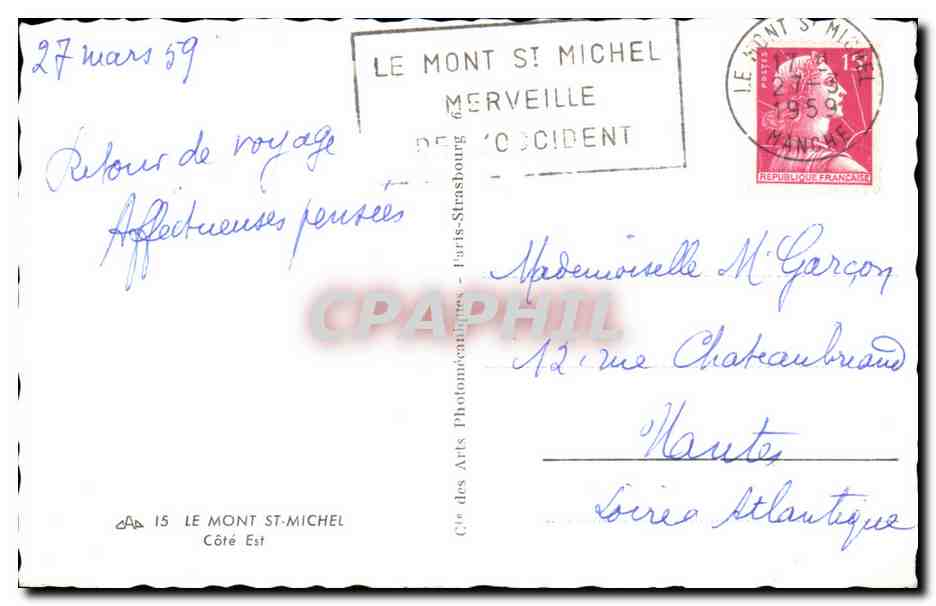 27 mars 59
Retour de voyage
Affectueuses pensées
LE MONT ST MICHEL
MERVEILLE
DE L'OCCIDENT
LE MONT ST MICHEL
27-3
1959
MANCHE
POSTES
15F
REPUBLIQUE FRANCAISE
Mademoiselle M. Garçon
12 rue Chateaubriand
Nantes
Loire Atlantique
Cie des Arts Photomécaniques - Paris-Strasbourg
CPAPHIL
15 LE MONT ST-MICHEL
Côté Est